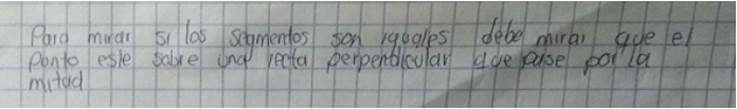 Para mirar si los segmentos son iguales debe mirar que el
ponto este sobre una recta perpendicular que pase por la
mitad